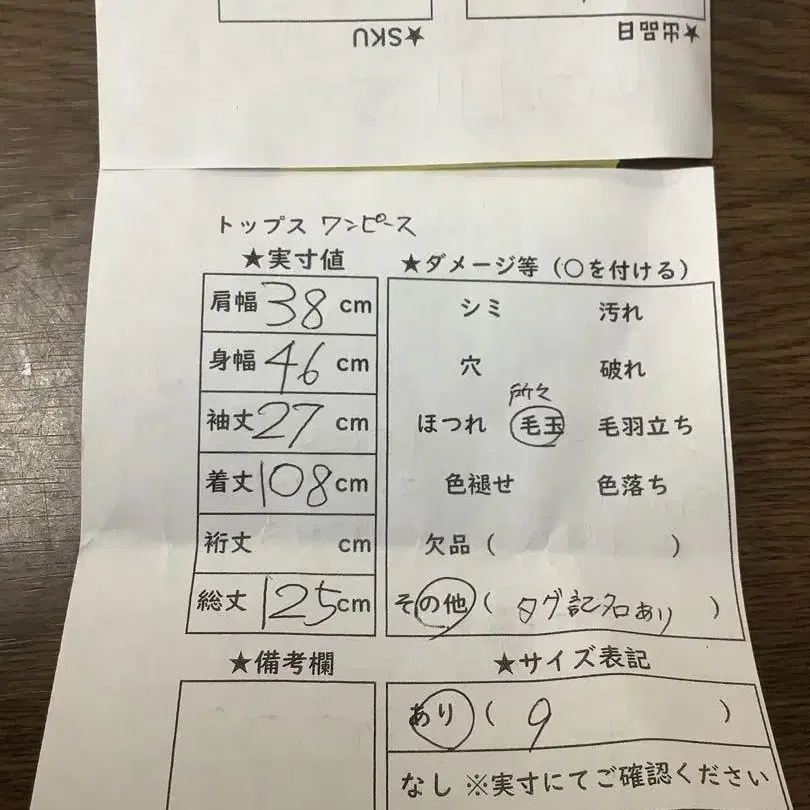 ★SKU
★出品日
トップス ワンピース
★実寸値
肩幅 38 cm
身幅 46 cm
袖丈 27 cm
着丈 108 cm
裄丈 cm
総丈 125 cm
★ダメージ等（○を付ける）
シミ 汚れ
穴 破れ
所々
ほつれ 毛玉 毛羽立ち
色褪せ 色落ち
欠品（ ）
その他（ タグ記名あり ）
★備考欄
★サイズ表記
あり（ 9 ）
なし ※実寸にてご確認ください